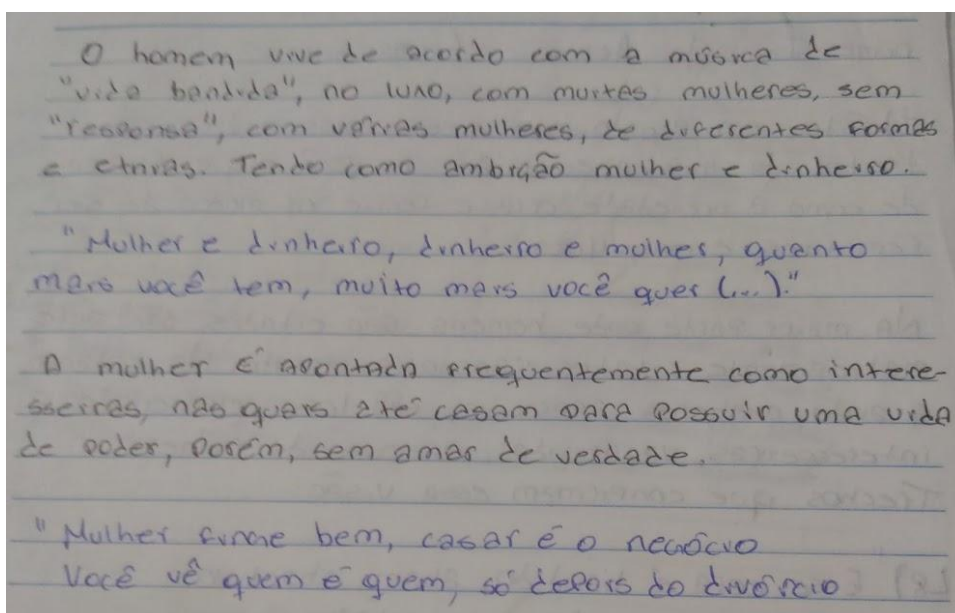 O homem vive de acordo com a música de
"vida bandida", no luxo, com muitas mulheres, sem
"responsa", com várias mulheres, de diferentes formas
e etnias. Tendo como ambição mulher e dinheiro.
"Mulher e dinheiro, dinheiro e mulher, quanto
mais você tem, muito mais você quer (...)."
A mulher é apontada frequentemente como intere-
sseiras, nas quais até casam para possuir uma vida
de poder, porém, sem amar de verdade.
"Mulher finge bem, casar é o negócio
Você vê quem é quem, só depois do divórcio